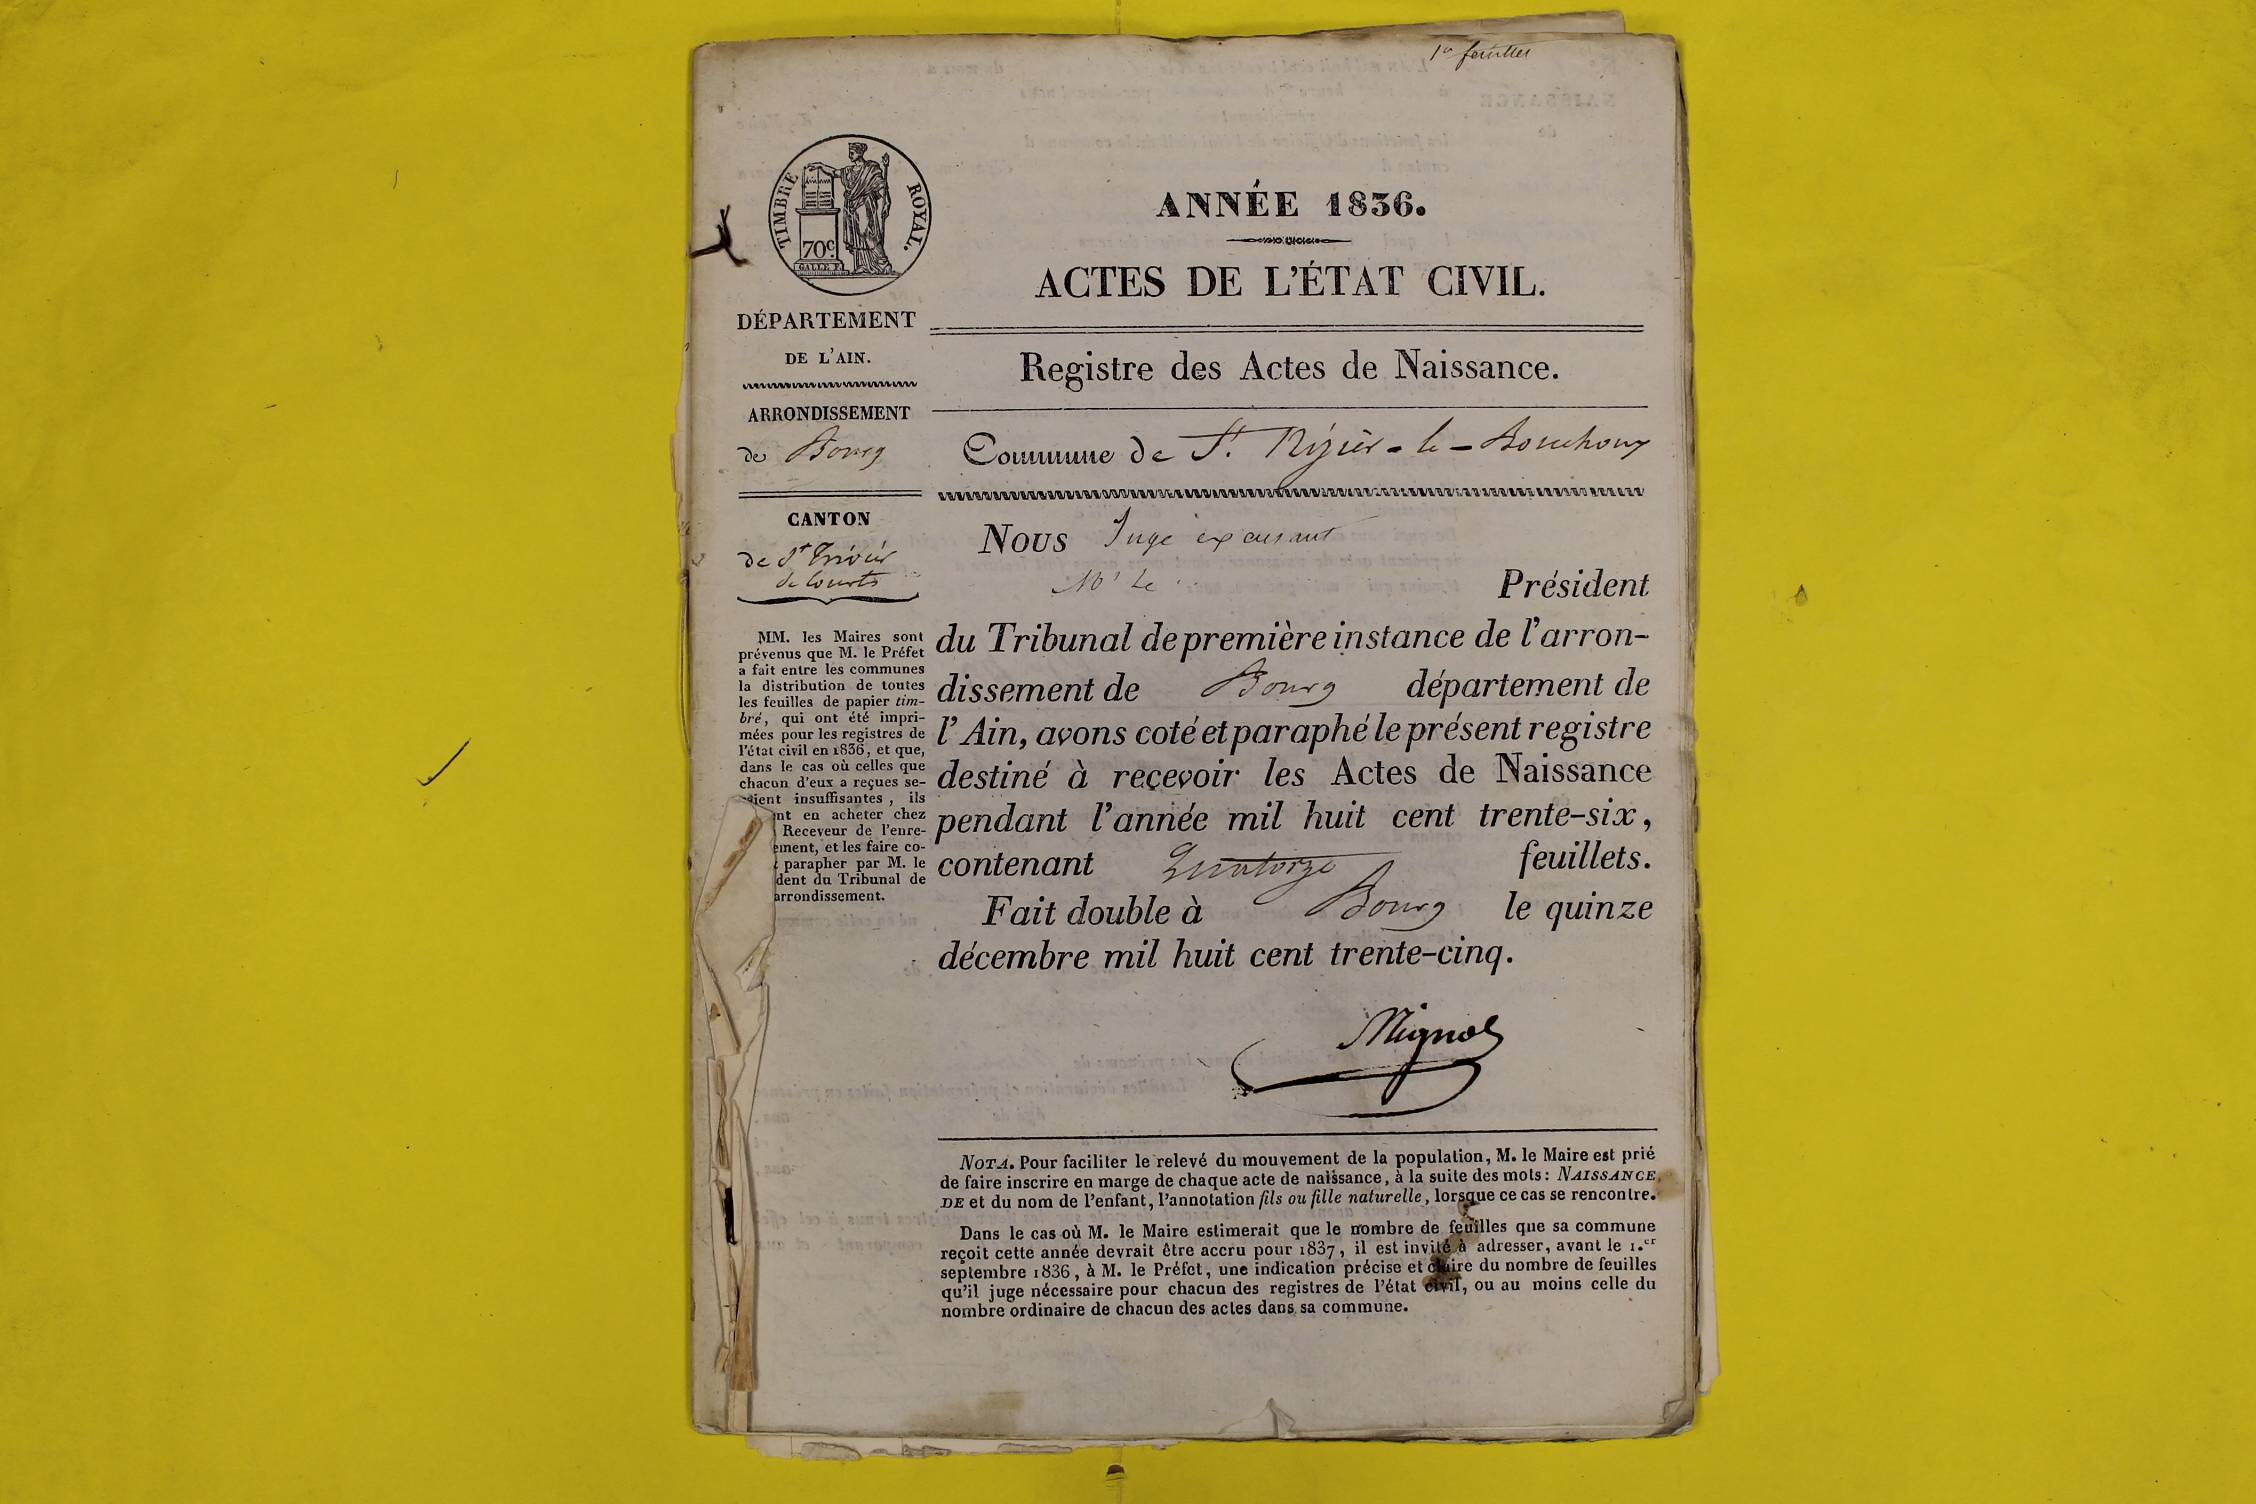 1er feuillet
TIMBRE ROYAL.
70c.
ANNÉE 1836.
ACTES DE L'ÉTAT CIVIL.
DÉPARTEMENT
DE L'AIN.
ARRONDISSEMENT
de Bourg
CANTON
de St Trivier
de Courtes
MM. les Maires sont
prévenus que M. le Préfet
a fait entre les communes
la distribution de toutes
les feuilles de papier tim-
bré, qui ont été impri-
mées pour les registres de
l'état civil en 1836, et que,
dans le cas où celles que
chacun d'eux a reçues se-
ient insuffisantes, ils
nt en acheter chez
Receveur de l'enre-
ement, et les faire co-
parapher par M. le
dent du Tribunal de
arrondissement.
Registre des Actes de Naissance.
Commune de St. Nizier-le-Bouchoux
Nous Juge excusant
Mr le Président
du Tribunal de première instance de l'arron-
dissement de Bourg département de
l'Ain, avons coté et paraphé le présent registre
destiné à reçevoir les Actes de Naissance
pendant l'année mil huit cent trente-six,
contenant Quatorze feuillets.
Fait double à Bourg le quinze
décembre mil huit cent trente-cinq.
NOTA. Pour faciliter le relevé du mouvement de la population, M. le Maire est prié
de faire inscrire en marge de chaque acte de naissance, à la suite des mots: NAISSANCE
DE et du nom de l'enfant, l'annotation fils ou fille naturelle, lorsque ce cas se rencontre.
Dans le cas où M. le Maire estimerait que le nombre de feuilles que sa commune
reçoit cette année devrait être accru pour 1837, il est invité à adresser, avant le 1.er
septembre 1836, à M. le Préfet, une indication précise et claire du nombre de feuilles
qu'il juge nécessaire pour chacun des registres de l'état civil, ou au moins celle du
nombre ordinaire de chacun des actes dans sa commune.